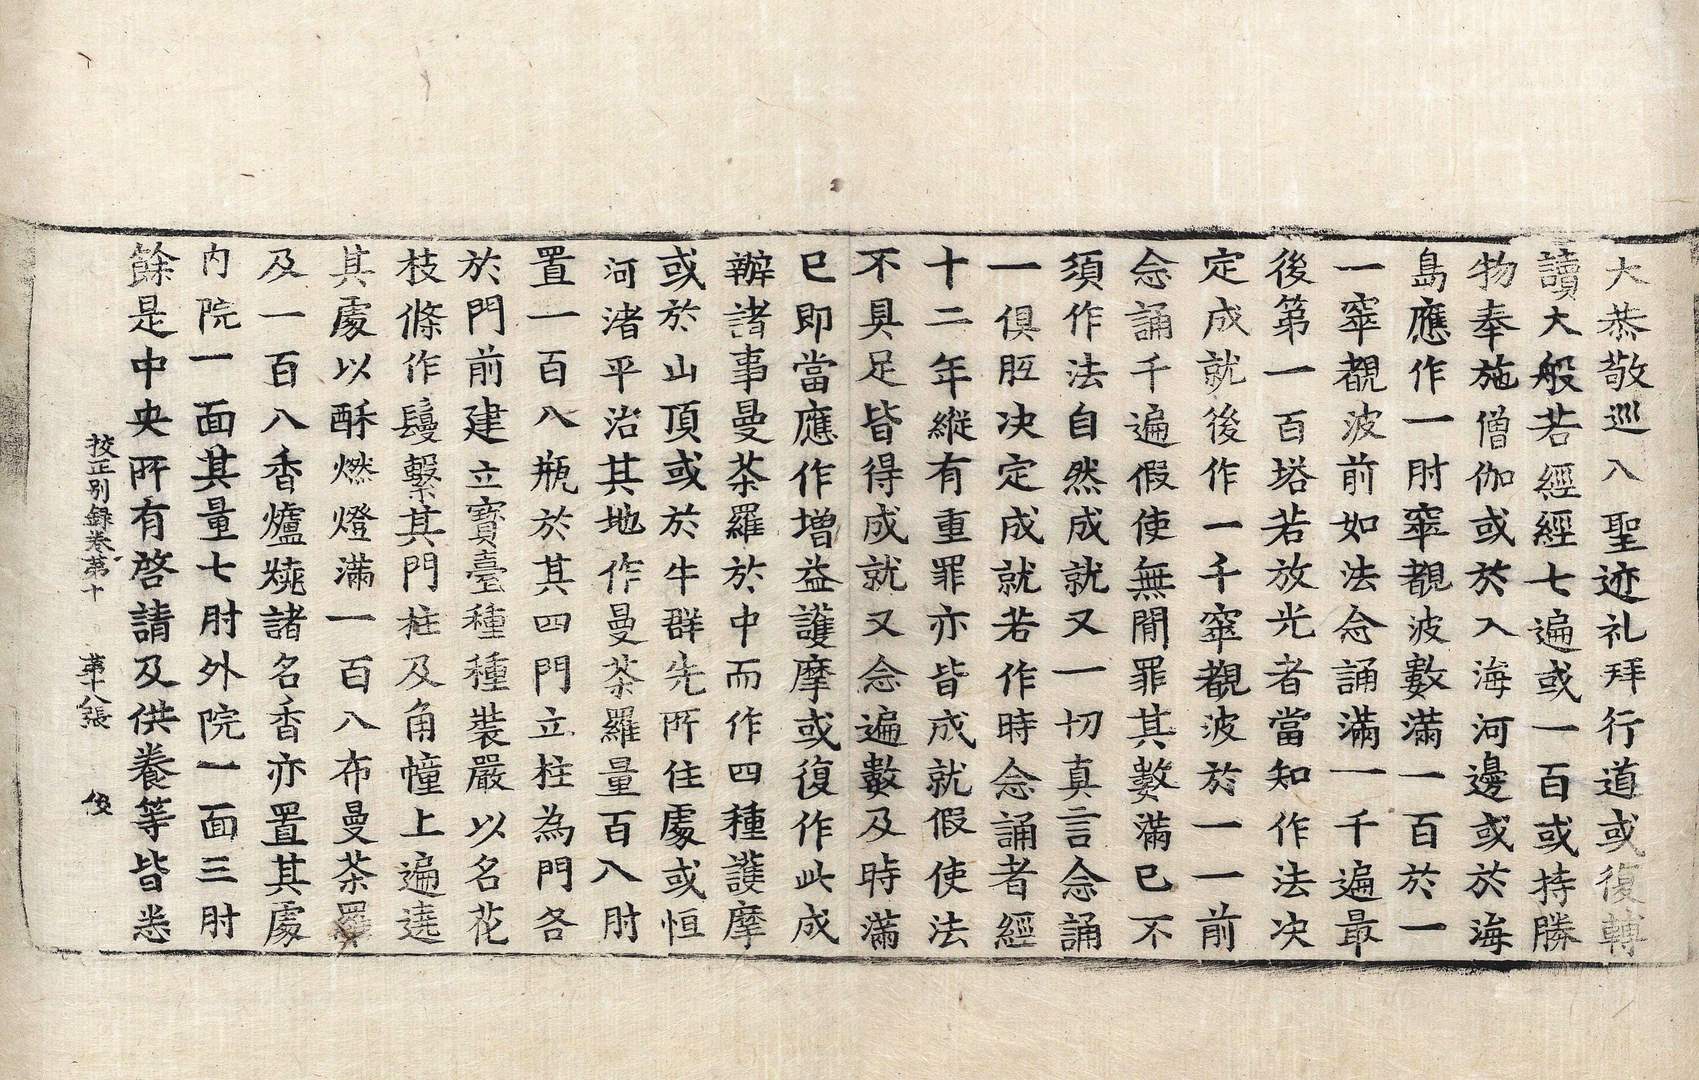 大恭敬巡八聖迹礼拜行道或復轉
讀大般若經經七遍或一百或持勝
物奉施僧伽或於入海河邊或於海
島應作一肘窣覩波數滿一百於一
一窣覩波前如法念誦滿一千遍最
後第一百塔若放光者當知作法决
定成就後作一千窣覩波於一一前
念誦千遍假使無閒罪其數滿已不
須作法自然成就又一切真言念誦
一俱胝决定成就若作時念誦者經
十二年縱有重罪亦皆成就假使法
不具足皆得成就又念遍數及時滿
已即當應作增益護摩或復作此成
辦諸事曼荼羅於中而作四種護摩
或於山頂或於牛群先所住處或恒
河渚平治其地作曼荼羅量百八肘
置一百八瓶於其四門立柱為門各
於門前建立寶臺種種裝嚴以名花
枝條作鬘繫其門柱及角幢上遍遶
其處以酥燃燈滿一百八布曼荼羅
及一百八香爐燒諸名香亦置其處
内院一面其量七肘外院一面三肘
餘是中央所有啓請及供養等皆悉
挍正别錄卷第十 第十八張 俊